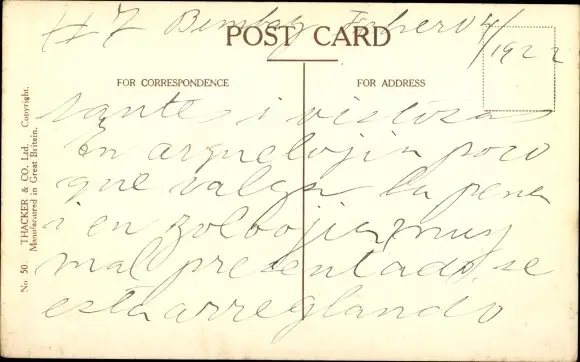 # 7 Bombay Febrero 4/
1922
POST CARD
FOR CORRESPONDENCE
FOR ADDRESS
santes i vistosas
En arquelojia poco
que valga la pena
i en zoloojia muy
mal presentado, se
esta arreglando
No. 50 THACKER & CO., Ltd. Copyright.
Manufactured in Great Britain.